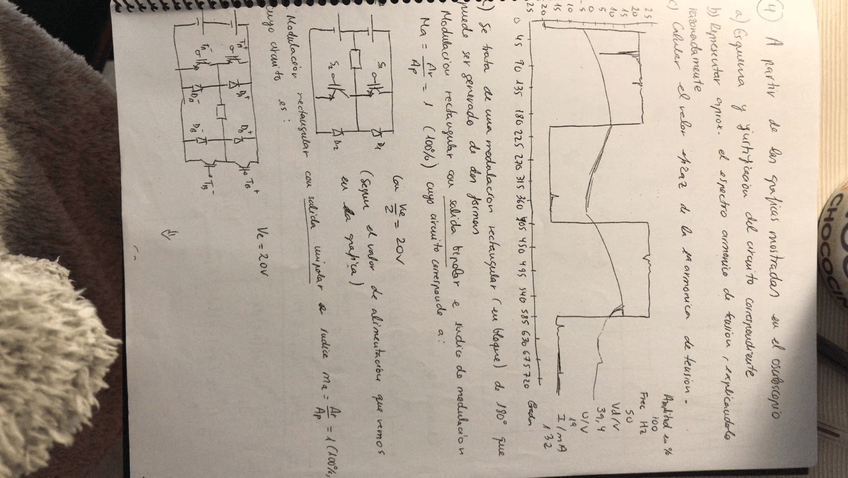 4) A partir de las graficas mostradas en el osciloscopio
a) Esquema y justificación del circuito correspondiente
b) Representar aprox. el espectro armonico de tension, explicandolo
razonadamente
c) Calcular el valor eficaz de la 1ª armonica de tension.
Amplitud en %
100
Frec Hz
50
Vd/V
39,4
U/V
19
I/mA
132
25
20
15
10
5
0
-5
-10
-15
-20
-25
0 45 90 135 180 225 270 315 360 405 450 495 540 585 630 675 720 Grados
a) Se trata de una modulacion rectangular (en bloque) de 180° que
puede ser generado de dos formas
Modulacion rectangular con salida bipolar e indice de modulacion
Ma = Ar/Ap = 1 (100%) cuyo circuito corresponde a:
S1
D1
S2
D2
Con Ve/2 = 20V
(Segun el valor de alimentación que vemos
en la grafica)
Modulacion rectangular con salida unipolar e indice ma = Ar/Ap = 1 (100%)
cuyo circuito es:
Ve = 20V
CHOCO